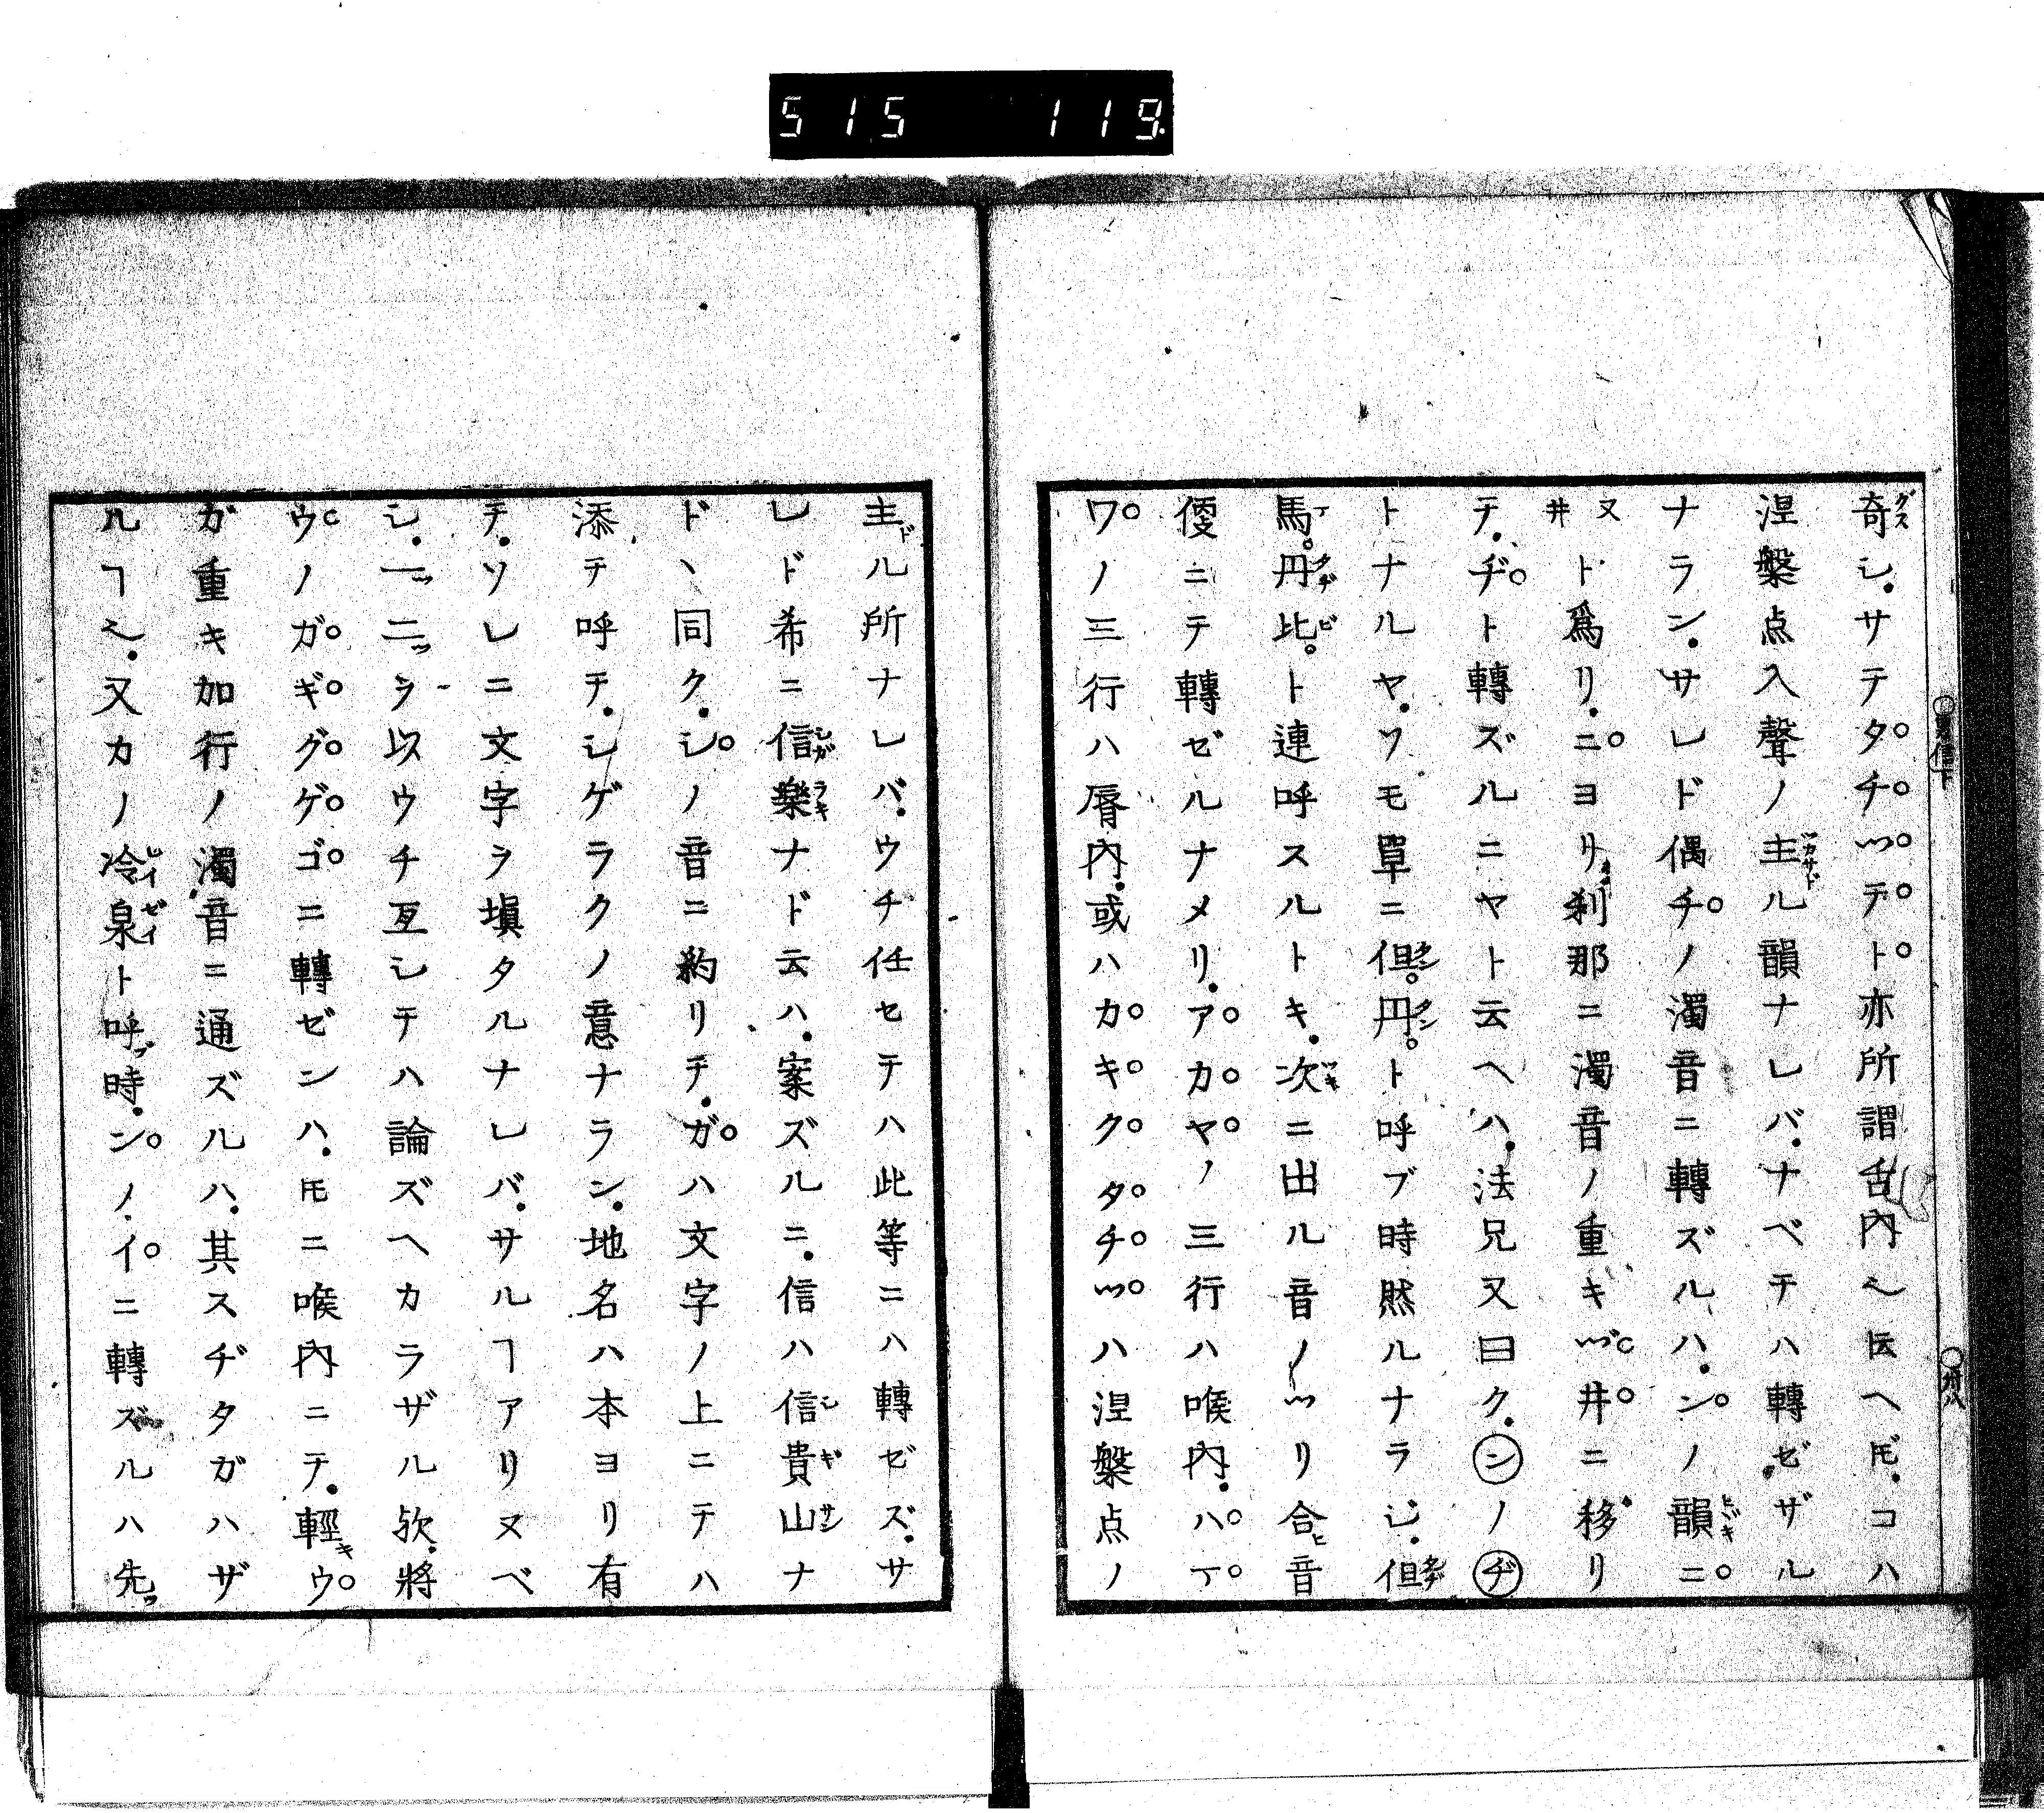 515 119.
奇シ。サテタチツテト亦所謂舌内也𪜈ヘ𪜈。コハ
涅槃点入聲ノ主ル韻ナレバ。ナベテハ轉ゼザル
ナラン。サレド偶チノ濁音ニ轉ズルハ。ンノ韻ニ
又井ト爲リ。ニヨリ。刹那ニ濁音ノ重キヅ井ニ移リ
テ。ヂト轉ズルニヤト云ヘハ。法兄又曰ク。ンノヂ
トナルヤ。ソモ單ニ但。丹。ト呼ブ時然ルナラジ。但
馬。丹比。ト連呼スルトキ。次ニ出ル音ノツリ合音
便ニテ轉ゼルナメリ。アカヤノ三行ハ喉内。ハマ
ワノ三行ハ脣内。或ハカキクタチツハ涅槃点ノ
主ル所ナレバ。ウチ任セテハ此等ニハ轉ゼズ。サ
レド希ニ信樂ナド云ハ。案ズルニ。信ハ信貴山ナ
ドヽ同ク。シノ音ニ約リテ。ガハ文字ノ上ニテハ
添テ呼テ。シゲラクノ意ナラン。地名ハ本ヨリ有
テ。ソレニ文字ヲ塡タルナレバ。サルヿアリヌベ
シ。一ツ二ツヲ以ウチ互シテハ論ズヘカラザル欤。將
ウノガギグゲゴニ轉ゼンハ。𪜈ニ喉内ニテ。輕キウ
ガ重キ加行ノ濁音ニ通ズルハ。其スヂタガハザ
ルヿ也。又カノ冷泉ト呼ブ時。ンノイニ轉ズルハ先ヅ